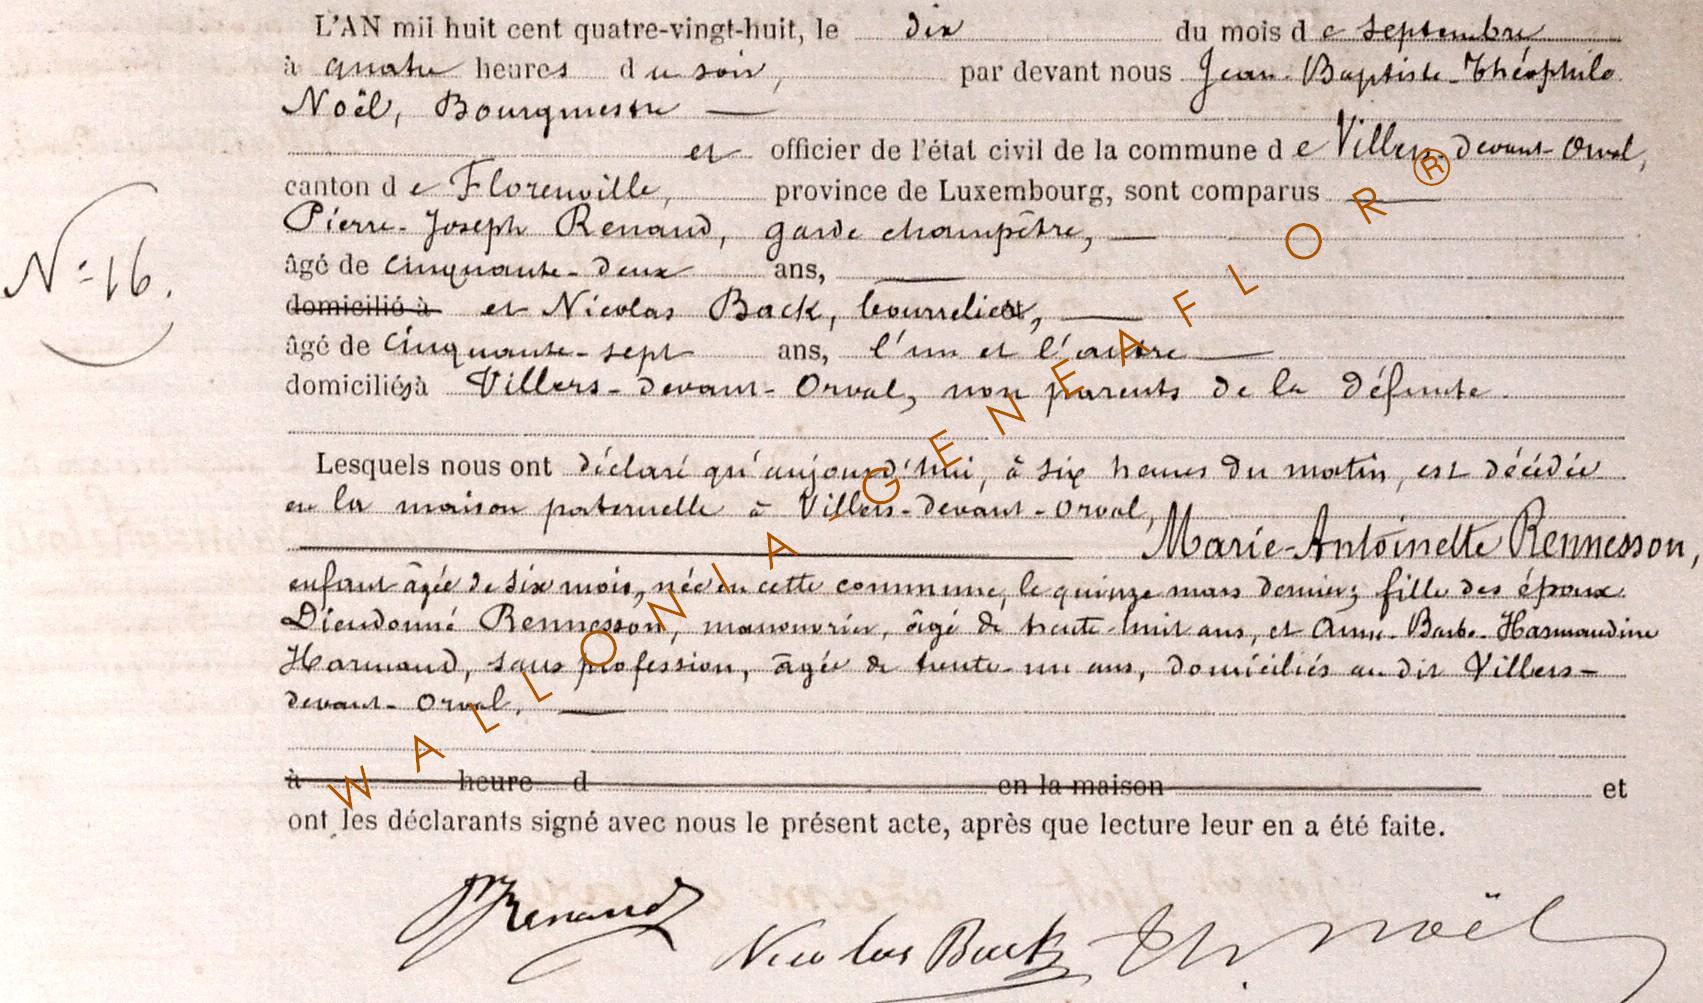 L'AN mil huit cent quatre-vingt-huit, le dix du mois de septembre
à quatre heures du soir, par devant nous Jean-Baptiste-Théophile
Noël, Bourgmestre
et officier de l'état civil de la commune de Villers-devant-Orval,
canton de Florenville, province de Luxembourg, sont comparus
Pierre-Joseph Renaud, garde champêtre,
âgé de cinquante-deux ans,
N° 16.
domicilié à et Nicolas Back, bourrelier,
âgé de cinquante-sept ans, l'un et l'autre
domiciliés à Villers-devant-Orval, non parents de la défunte.
Lesquels nous ont déclaré qu'aujourd'hui, à six heures du matin, est décédée
en la maison paternelle à Villers-devant-Orval,
Marie-Antoinette Rennesson,
enfant âgée de six mois, née en cette commune, le quinze mars dernier, fille des époux
Dieudonné Rennesson, manouvrier, âgé de trente-huit ans, et Anne-Barbe-Harmandine
Harmand, sans profession, âgée de trente-un ans, domiciliés au dit Villers-
devant-Orval.
à heure d en la maison et
ont les déclarants signé avec nous le présent acte, après que lecture leur en a été faite.
PJRenaud
Nicolas Back Th. Noël
WALLONIA-GENEAFLOR®